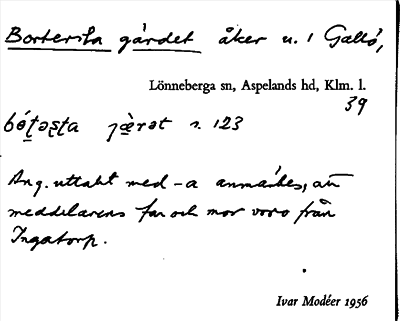 Bortersta gärdet åker n. 1 Gallö,
Lönneberga sn, Aspelands hd, Klm. l.
39
s. 123
Ang. uttalet med -a anmärkes, att
meddelarens far och mor voro från
Ingatorp.
Ivar Modéer 1956